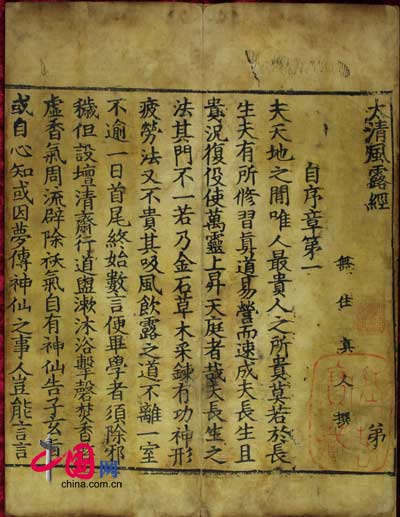 大清風露經
無住真人撰
第
自序章第一
夫天地之間唯人最貴人之所貴莫若於長
生夫有所修習真道易營而速成夫長生且
貴況復役使萬靈上昇天庭者哉夫長生之
法其門不一若乃金石草木采鍊有功神形
疲勞法又不貴其吸風飲露之道不離一室
不逾一日首尾終始數言使畢學者須除邪
穢但設壇清齋行道盥漱沐浴擊磬焚香
虛香氣周流辟除祅氣自有神仙告子玄
或自心知或因夢傳神仙之事人豈能言言
中国网
china.com.cn